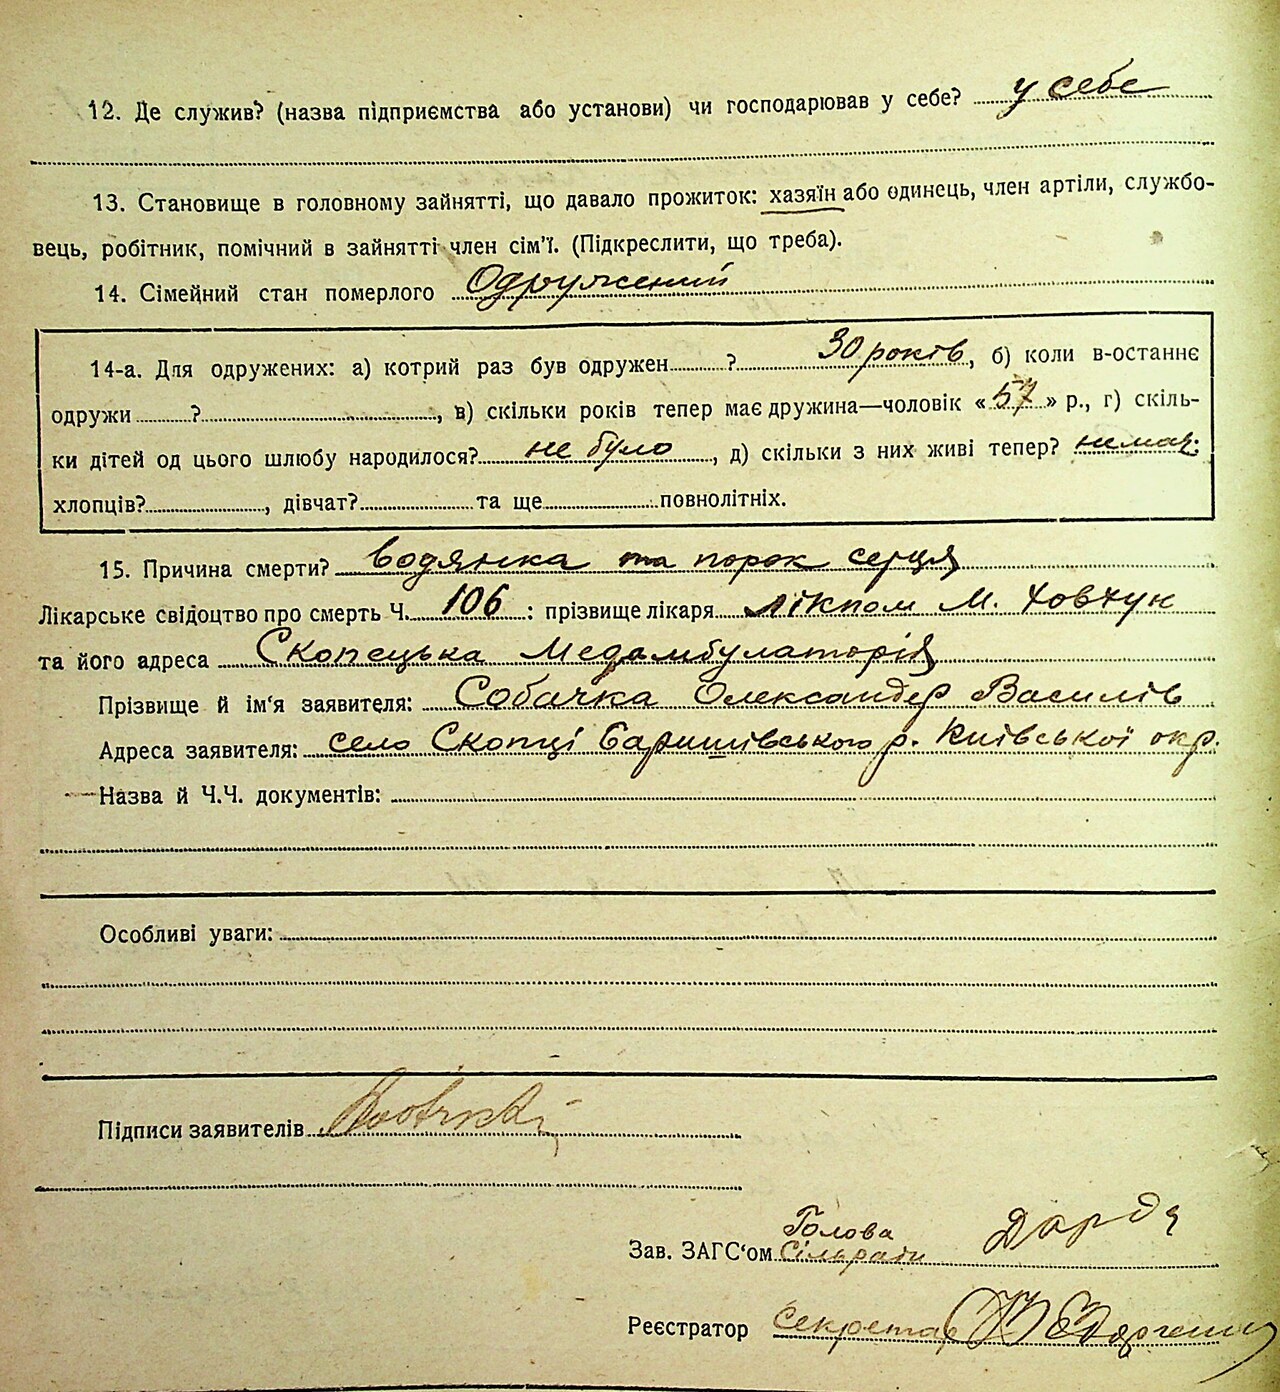 12. Де служив? (назва підприємства або установи) чи господарював у себе? у себе
13. Становище в головному зайнятті, що давало прожиток: хазяїн або одинець, член артілі, службо-
вець, робітник, помічний в зайнятті член сім'ї. (Підкреслити, що треба).
14. Сімейний стан померлого Одружений
14-а. Для одружених: а) котрий раз був одружен ? 30 років, б) коли в-останнє
одружи ? , в) скільки років тепер має дружина—чоловік « 57 » р., г) скіль-
ки дітей од цього шлюбу народилося? не було , д) скільки з них живі тепер? немає
хлопців? , дівчат? та ще повнолітніх.
15. Причина смерти? Водянка та порок серця
Лікарське свідоцтво про смерть Ч. 106 : прізвище лікаря лікпом М. Ховтун
та його адреса Скопецька Медамбулаторія
Прізвище й ім'я заявителя: Собачка Олександер Василів
Адреса заявителя: село Скопці Баришівського р. Київської окр.
Назва й Ч.Ч. документів:
Особливі уваги:
Підписи заявителів
Голова
Зав. ЗАГС'ом Сільради Дорда
Реєстратор Секретар